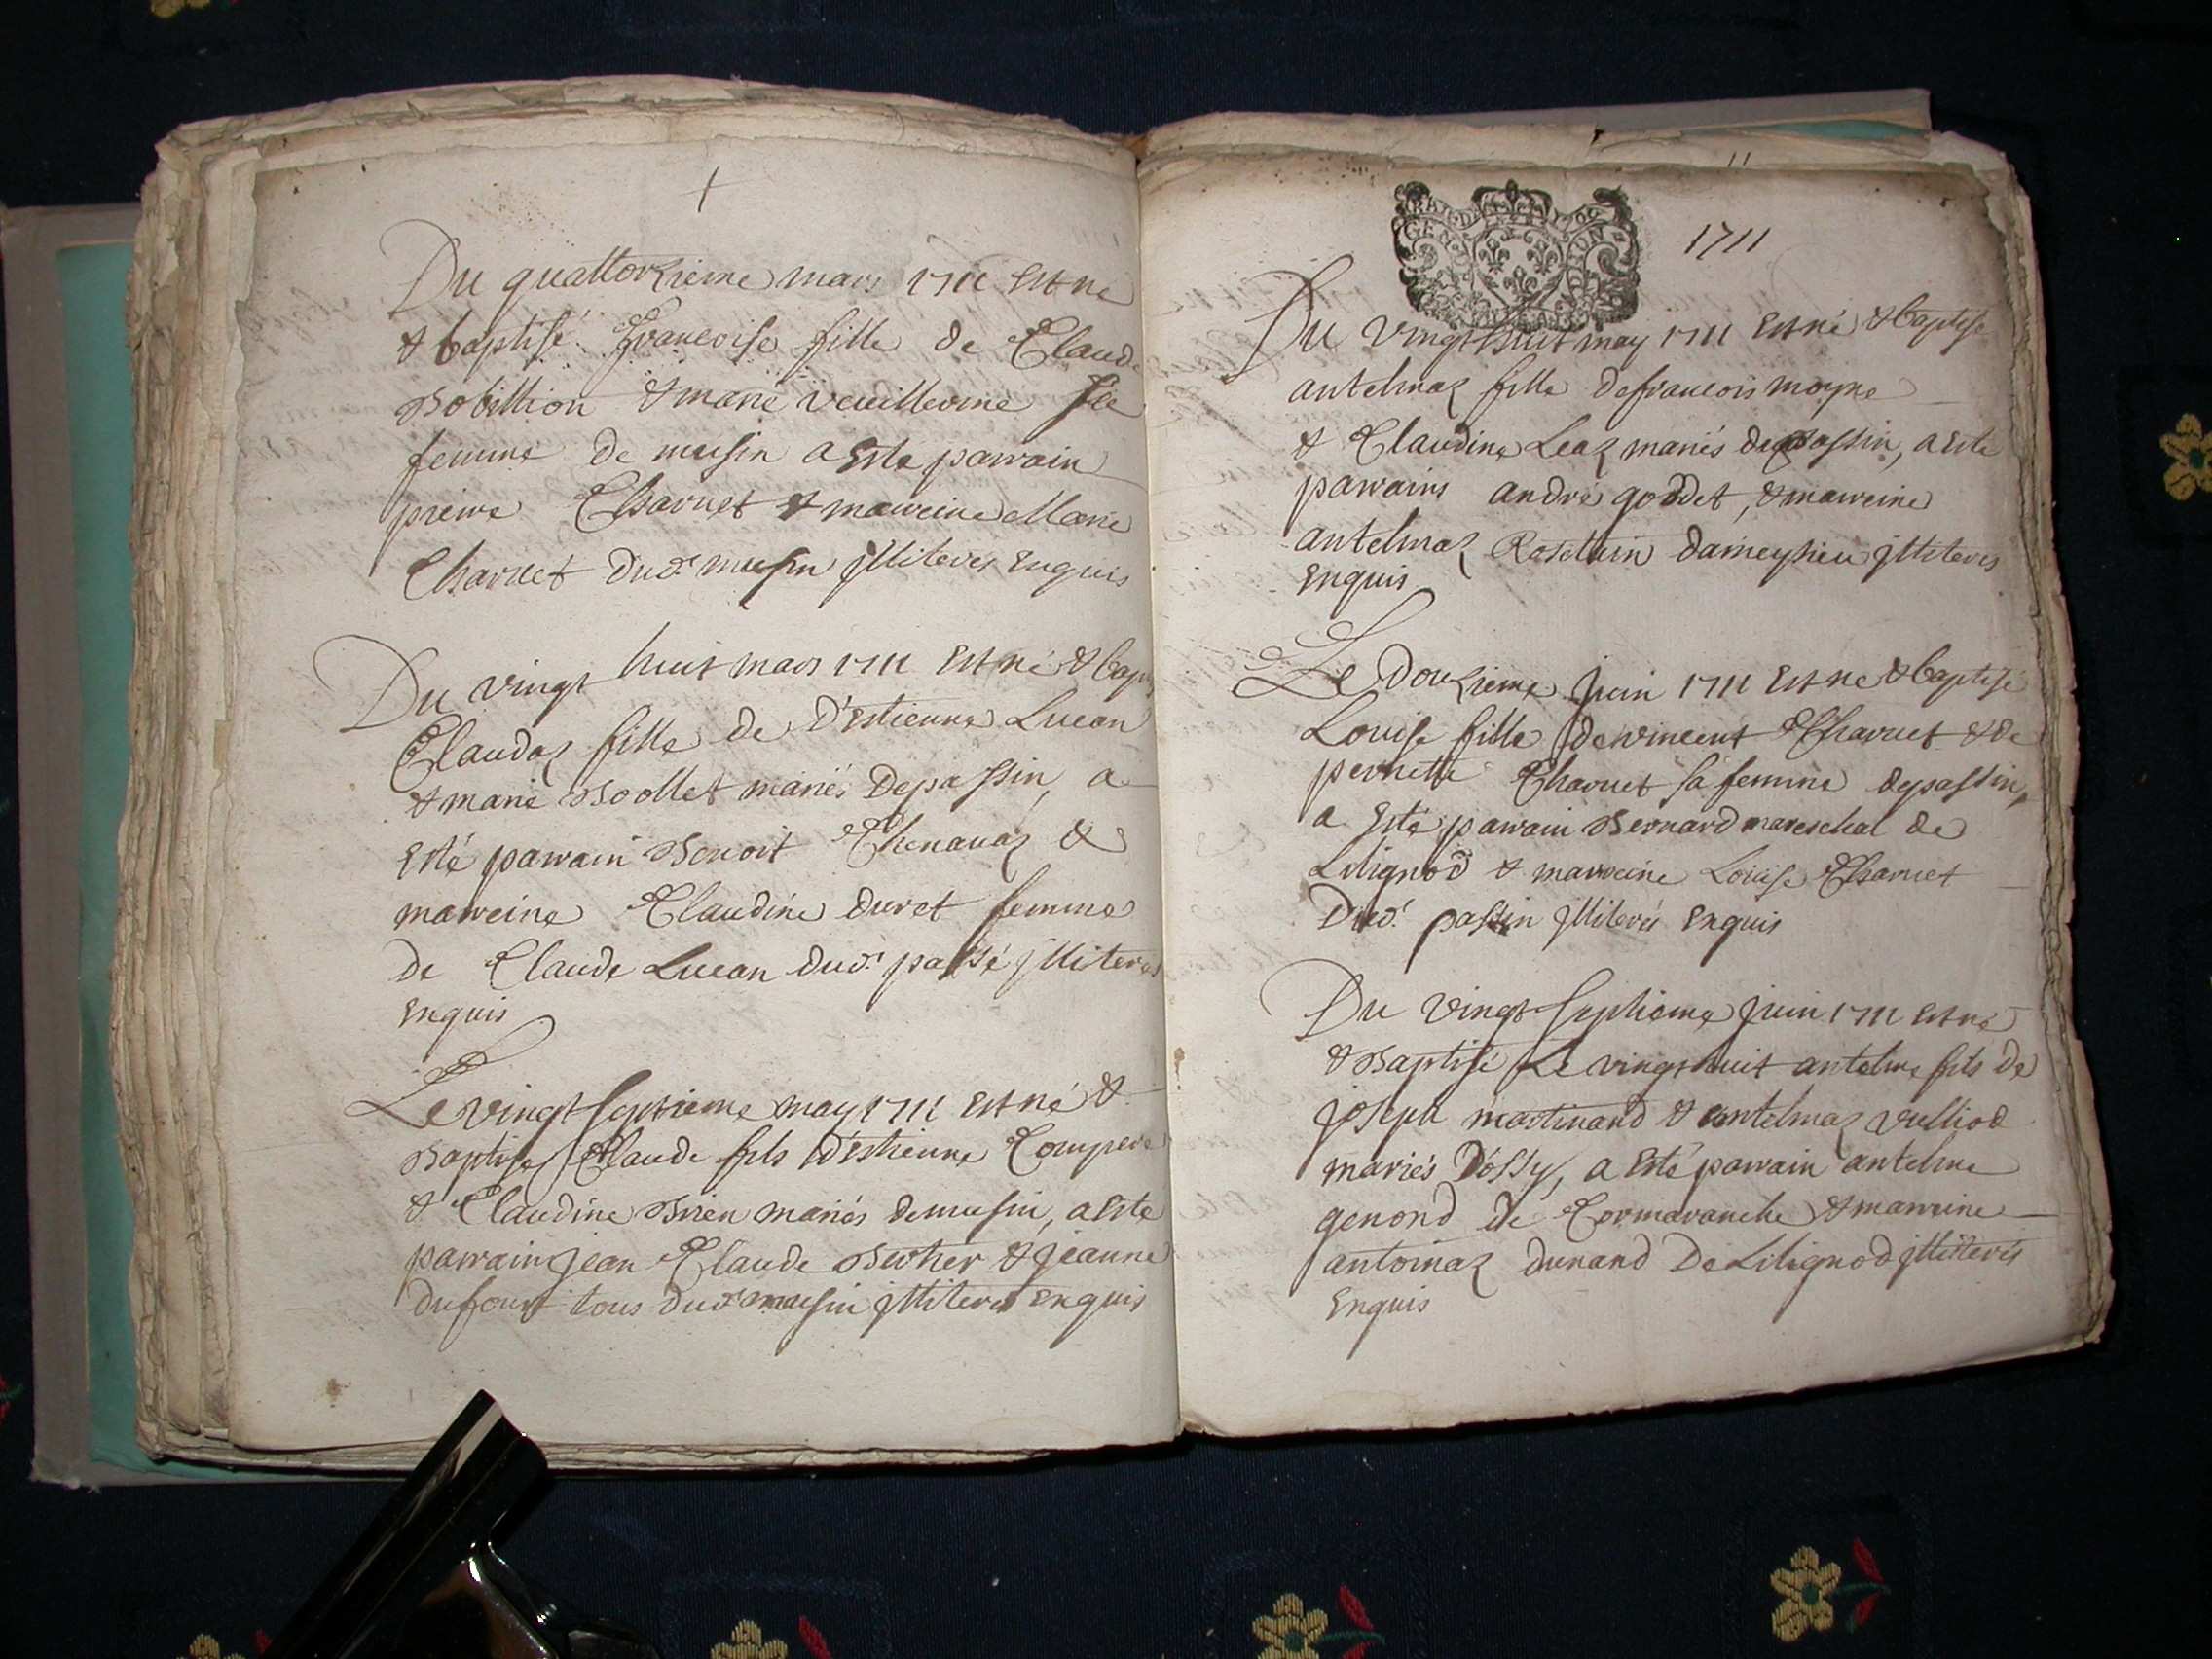 Du quattorzieme mars 1711 est ne
& baptisé francoise fille de Claude
Bobillion & marie veuillerme sa
femme de musin a este parrain
prierre Charvet & marreine Marie
Charvet dud. musin jlliteres enquis
Du vingt huit mars 1711 est né & bap
Claudaz fille de d'Estienne Lucan
& marie Bollet mariés de passin, a
esté parrain Benoit Chenavaz &
marreine Claudine duret femme
de Claude Lucan dud. passé jlliteres
enquis
Le vingt septieme may 1711 est né &
Baptise Claude fils d'Estienne Compere
& Claudine Brien mariés de musin, a este
parrain jean Claude Berthier & jeanne
dufour tous dud. musin jlliteres enquis
11
1711
GEN
Du vingt huit may 1711 est né & baptise
antelmaz fille de francois moyne
& Claudine Leaz mariés de passin, a este
parrains andré goddet, & marreine
antelmaz Roselain dameysieu jlliteres
enquis
Le douzieme juin 1711 est ne & baptisé
Louise fille de vincent Charvet & de
pernette Charvet sa femme de passin,
a esté parrain Bernard mareschal de
Lilignod & marreine Louise Charvet
dud. passin jlliterés enquis
Du vingt septieme juin 1711 est né
& Baptisé Le vingt huit antelme fils de
joseph martinand & antelmaz vulliod
mariés d'ossy, a esté parrain antelme
genond de Cormaranche & marreine
antoinaz durand de Lilignod jlliterés
enquis